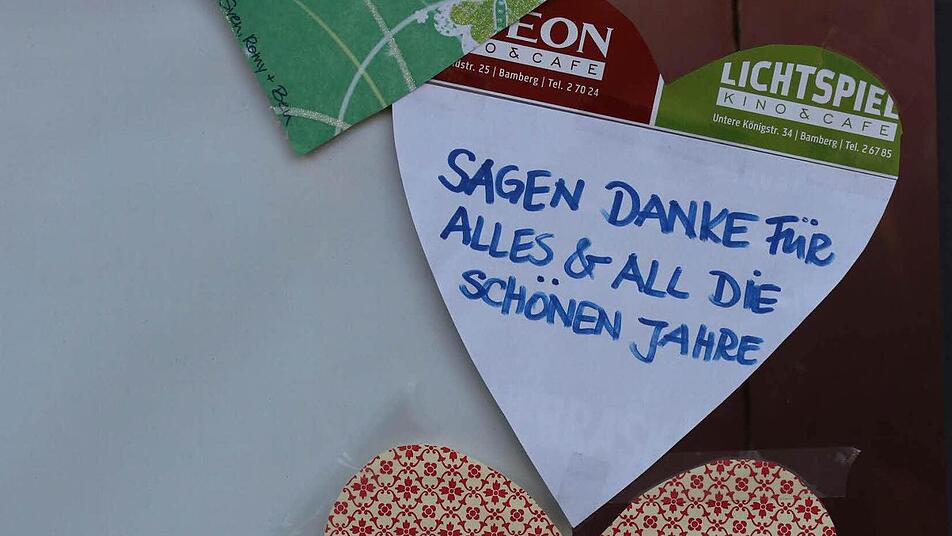 Sven, Romy + Ben
EON
KINO & CAFE
str. 25 | Bamberg | Tel. 2 70 24
LICHTSPIEL
KINO & CAFE
Untere Königstr. 34 | Bamberg | Tel. 2 67 85
SAGEN DANKE FÜR
ALLES & ALL DIE
SCHÖNEN JAHRE